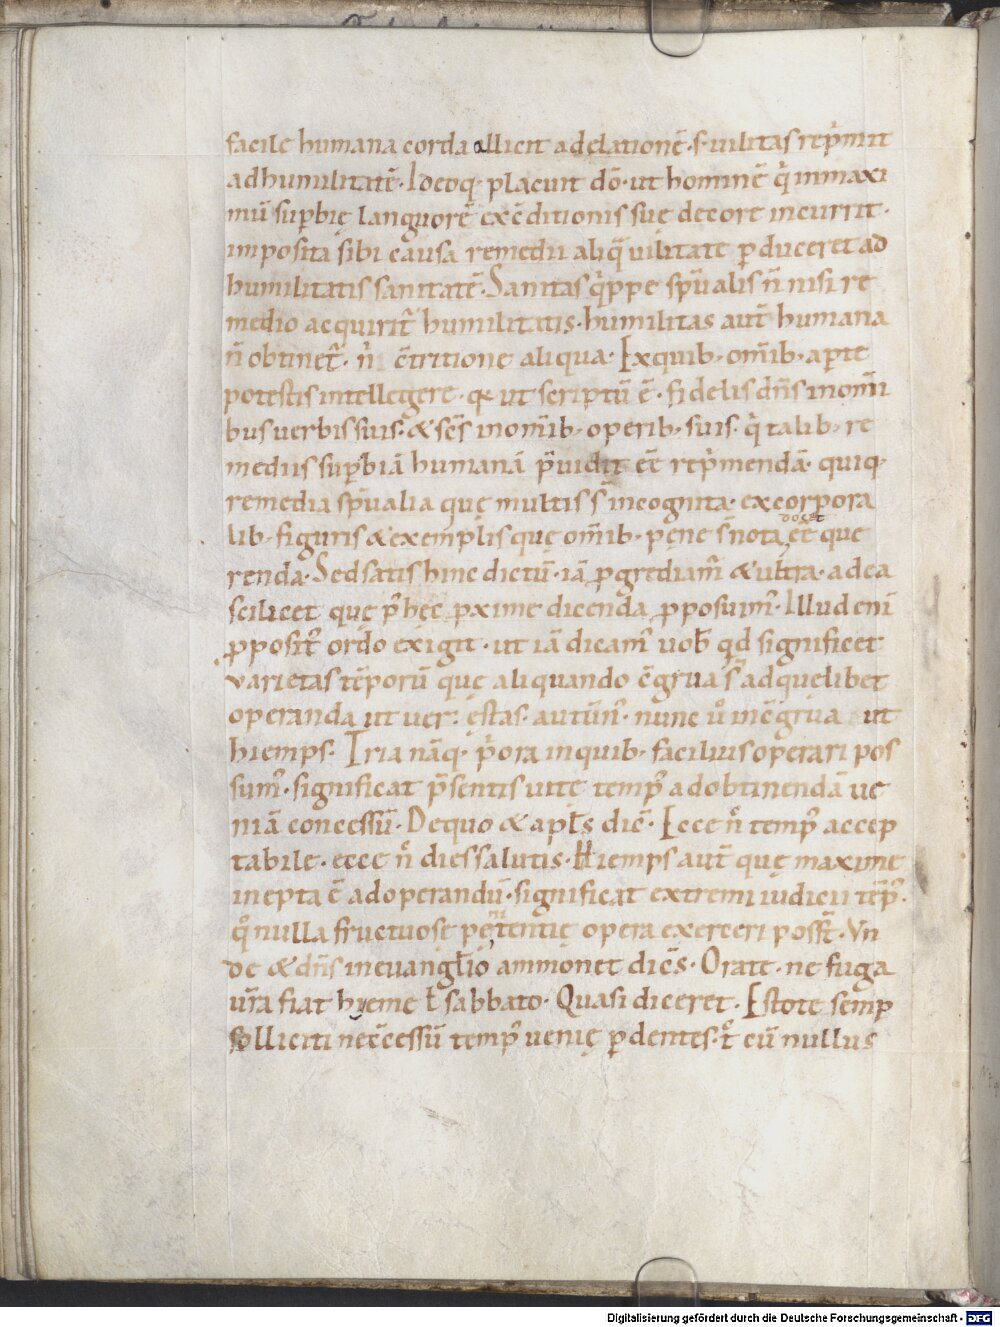 facile humana corda allicit ad elationē· s; uilitas rep̄mit
ad humilitatē· Idcoq· placuit dō· ut hominē q̇ in maxi
mū sup̱bię languorē ex c̄ditionis suę decore incurrit·
imposita sibi causa remedii aliq̄ uilitate p̱duceret ad
humilitatis sanitatē· Sanitas q̇ppe sp̄ualis n̄ nisi re
medio acquirit᷑ humilitatis· humilitas aut̄ humana
n̄ obtinet᷑· n̓ c̄tritione aliqua· Ex quib; om̄ib; aperte
potestis intellegere· q̨ ut scriptū ē· fidelis dn̄s in omni
bus uerbis suis· & sc̄s in om̄ib; operib; suis· q̇ talib; re
mediis sup̱biā humanā p̄uidit eē rep̄mendā· quiq·
remedia sp̄ualia quę multis s̄ incognita· ex corpora
lib; figuris & exemplis quę om̄ib; pene s̄ nota docet eē que
renda· Sed satis hinc dictū· iā p̱grediam᷑ & ultra· ad ea
scilicet quę p̓ hęc ꝓxime dicenda ꝓposuim᷒· Illud enī
ꝓposit᷒ ordo exigit· ut iā dicam᷒ uob̄ qd̄ significet
varietas tēporū quę aliquando c̄grua s̄ ad quęlibet
operanda ut uer· ęstas· autūn᷒· nunc ů inc̄grua ut
hiemps· Tria nāq· p̓ora in quib; facilius operari pos
sum᷒· significat p̄sentis uitę temp᷒ ad obtinendā ue
niā concessū· De quo & apl̄s dic̄· Ecce n̊ temp᷒ accep
tabile· ecce n̊ dies salutis· Hiemps aut̄ quę maxime
inepta ē ad operandū· significat extremi iudicii tēp᷒·
q̊ nulla fructuosę pęnitentię opera exerceri poss̄t· Vn
de & dn̄s in euangl̄io ammonet dicēs· Orate· ne fuga
ur̄a fiat hyeme ł sabbato· Quasi diceret· Estote semp̱
solliciti ne c̄cessū temp᷒ uenię p̱dentes· t̊ eū nullus
Digitalisierung gefördert durch die Deutsche Forschungsgemeinschaft - DFG